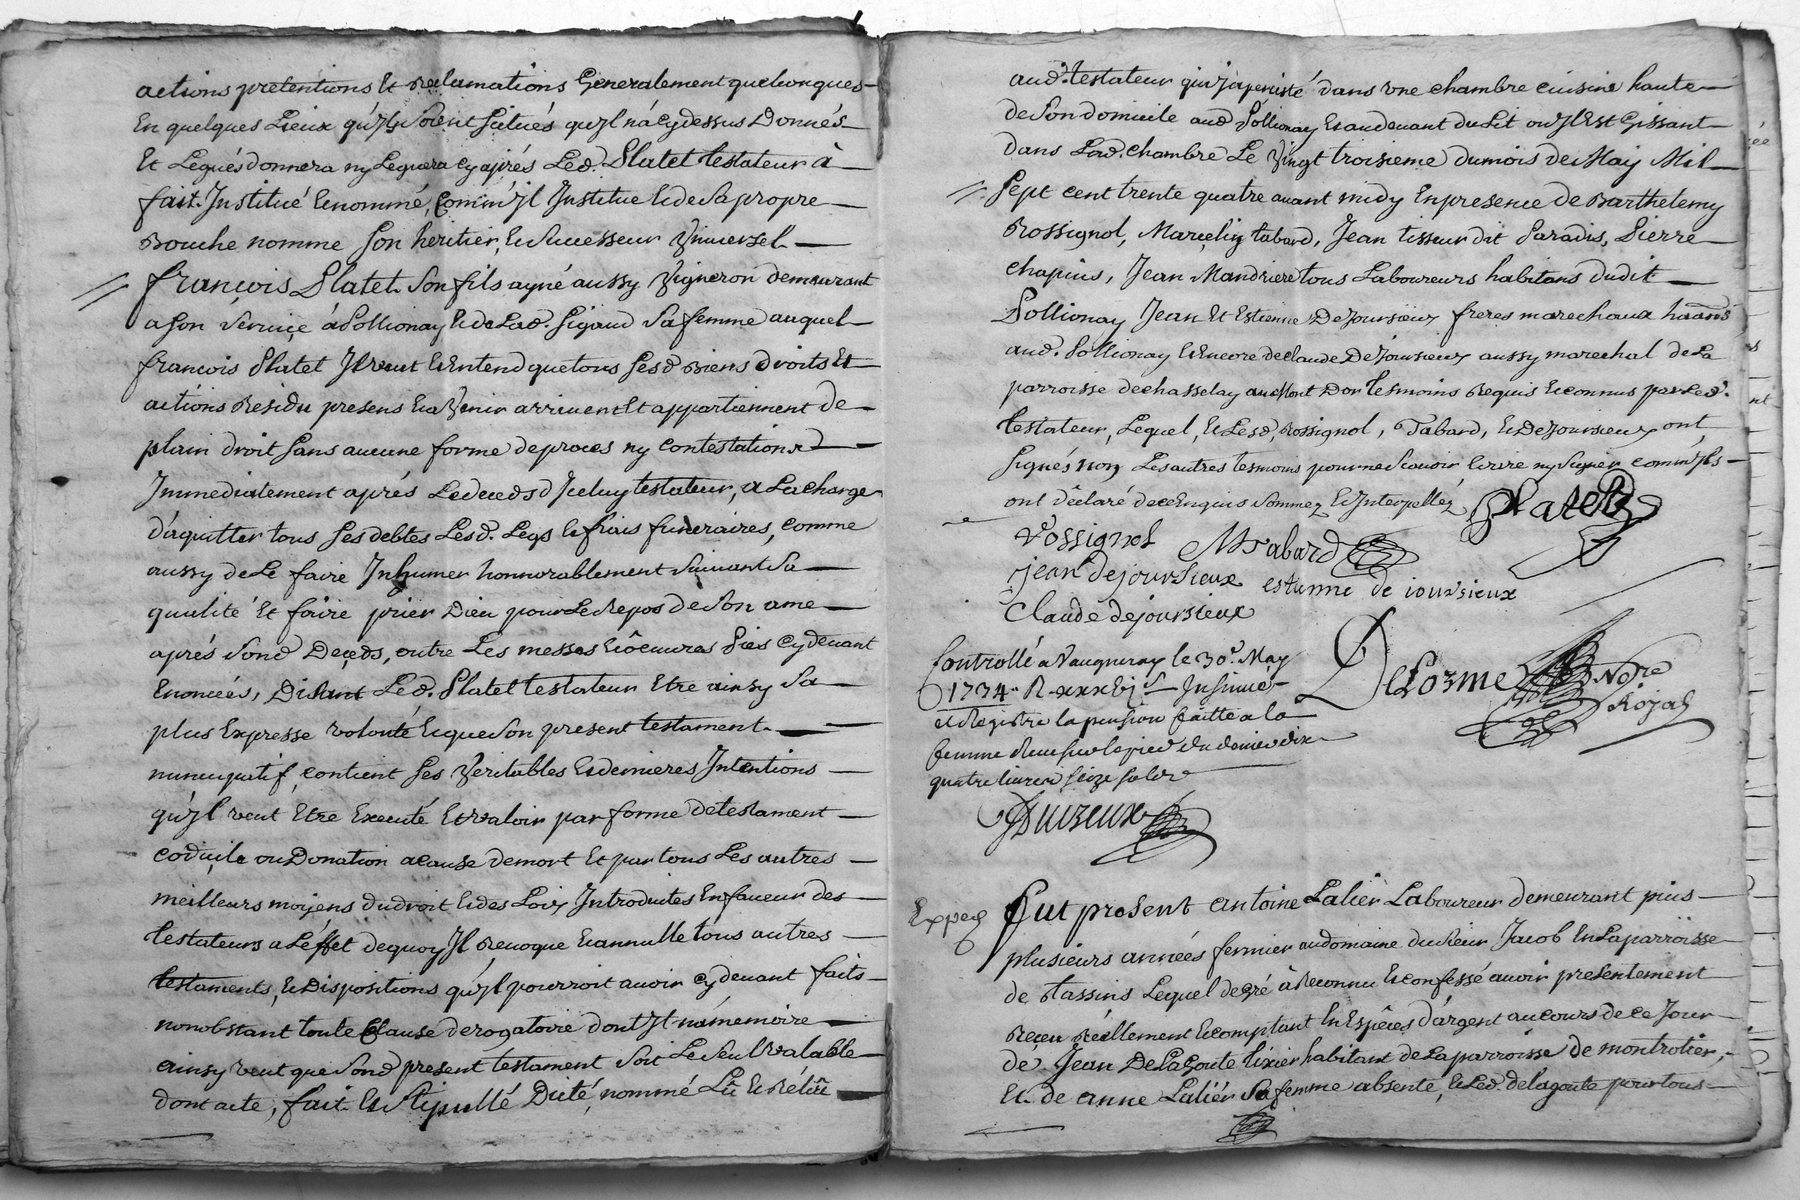 actions pretentions Et Reclamations Generalement quelconques
En quelques Lieux qu'Jls soient scitués qu'Jl n'a cydessus Donnés
Et Legués donnera ny Leguera cy aprés Led. Platet testateur à
fait Jnstitué Et nommé, Comm'Jl Jnstitue Et de sa propre
Bouche nomme son heritier, Et successeur Vniversel
françois Platet son fils ayné aussy Vigneron demeurant
a son service à Pollionay Et de Lad. Sigaud sa femme auquel
françois Platet Jl veut Et Entend que tous sesd Biens droits Et
actions Residu presens Et a Venir arrivent Et appartiennent de
plain droit sans aucune forme de proces ny contestations
Jmmediatement aprés Le deceds d'Jceluy testateur, a La charge
d'aquitter tous ses debtes Lesd. Legs Et frais funeraires, comme
aussy de Le faire Jnhumer honnorablement suivant sa
qualité Et faire prier Dieu pour Le Repos de son ame
aprés sond Deceds, outre Les messes Et oeuvres Pies cy devant
Enoncées, Disant Led. Platet testateur Etre ainsy sa
plus Expresse volonté Et que son present testament
nuncupatif contient ses Veritables Et dernieres Jntentions
qu'Jl veut Etre Executé Et valoir par forme de testament
codicile ou Donation a cause de mort Et par tous Les autres
meilleurs moyens du droit Et des Loix Jntroduites En faveur des
testateurs a L'effet de quoy Jl Revoque Et annulle tous autres
testaments, Et Dispositions qu'Jl pourroit avoir cy devant faits
nonobstant toute Clause derogatoire dont Jl n'a memoire
ainsy veut que sond present testament soit Le seul valable
dont acte, fait Et stipullé Dicté, nommé Lû Et Rélû
aud. testateur qui y a persisté dans vne chambre cuisine haute
de son domicile aud Pollionay Et au devant du Lit ou Jl Est Gissant
dans Lad. chambre Le Vingt troisieme du mois de May Mil
sept cent trente quatre avant midy En presence de Barthelemy
Rossignol, Marcelin tabard, Jean tisseur dit Paradis, Pierre
chapuis, Jean Mandriere tous Laboureurs habitans dudit
Pollionay Jean Et Estienne DeJoursieux freres marechaux
aud. Pollionay Et Encore de Claude DeJoursieux aussy marechal de La
parroisse de chasselay au Mont Dor tesmoins Requis Et connus par Led.
testateur, Lequel, Et Lesd, Rossignol, Tabard, Et DeJoursieux ont
signés non Les autres tesmoins pour ne scavoir Ecrire ny signer comm'Jls
ont déclaré de ce Enquis sommez Et Interpellez Platet
Rossignol M Tabard
jean dejoursieux estienne de ioursieux
Claude dejoursieux
Controllé a Vaugneray le 30e. May
1734. R. Jnsinué
et Registré la pension faitte a la
femme
quatre livres seize sols
Delorme Nore
Royal
Expeé
fut present antoine Lalier Laboureur demeurant
plusieurs années fermier au domaine du sieur Jacob En La parroisse
de tassins Lequel de gré à Reconnu Et confessé avoir presentement
Receu Réellement Et comptant En Espêces d'argent au cours de ce Jour
de Jean DeLaGoute tixier habitant de La parroisse de montrotier,
Et de anne Lalier sa femme absente, Et Led delagoute pour tous